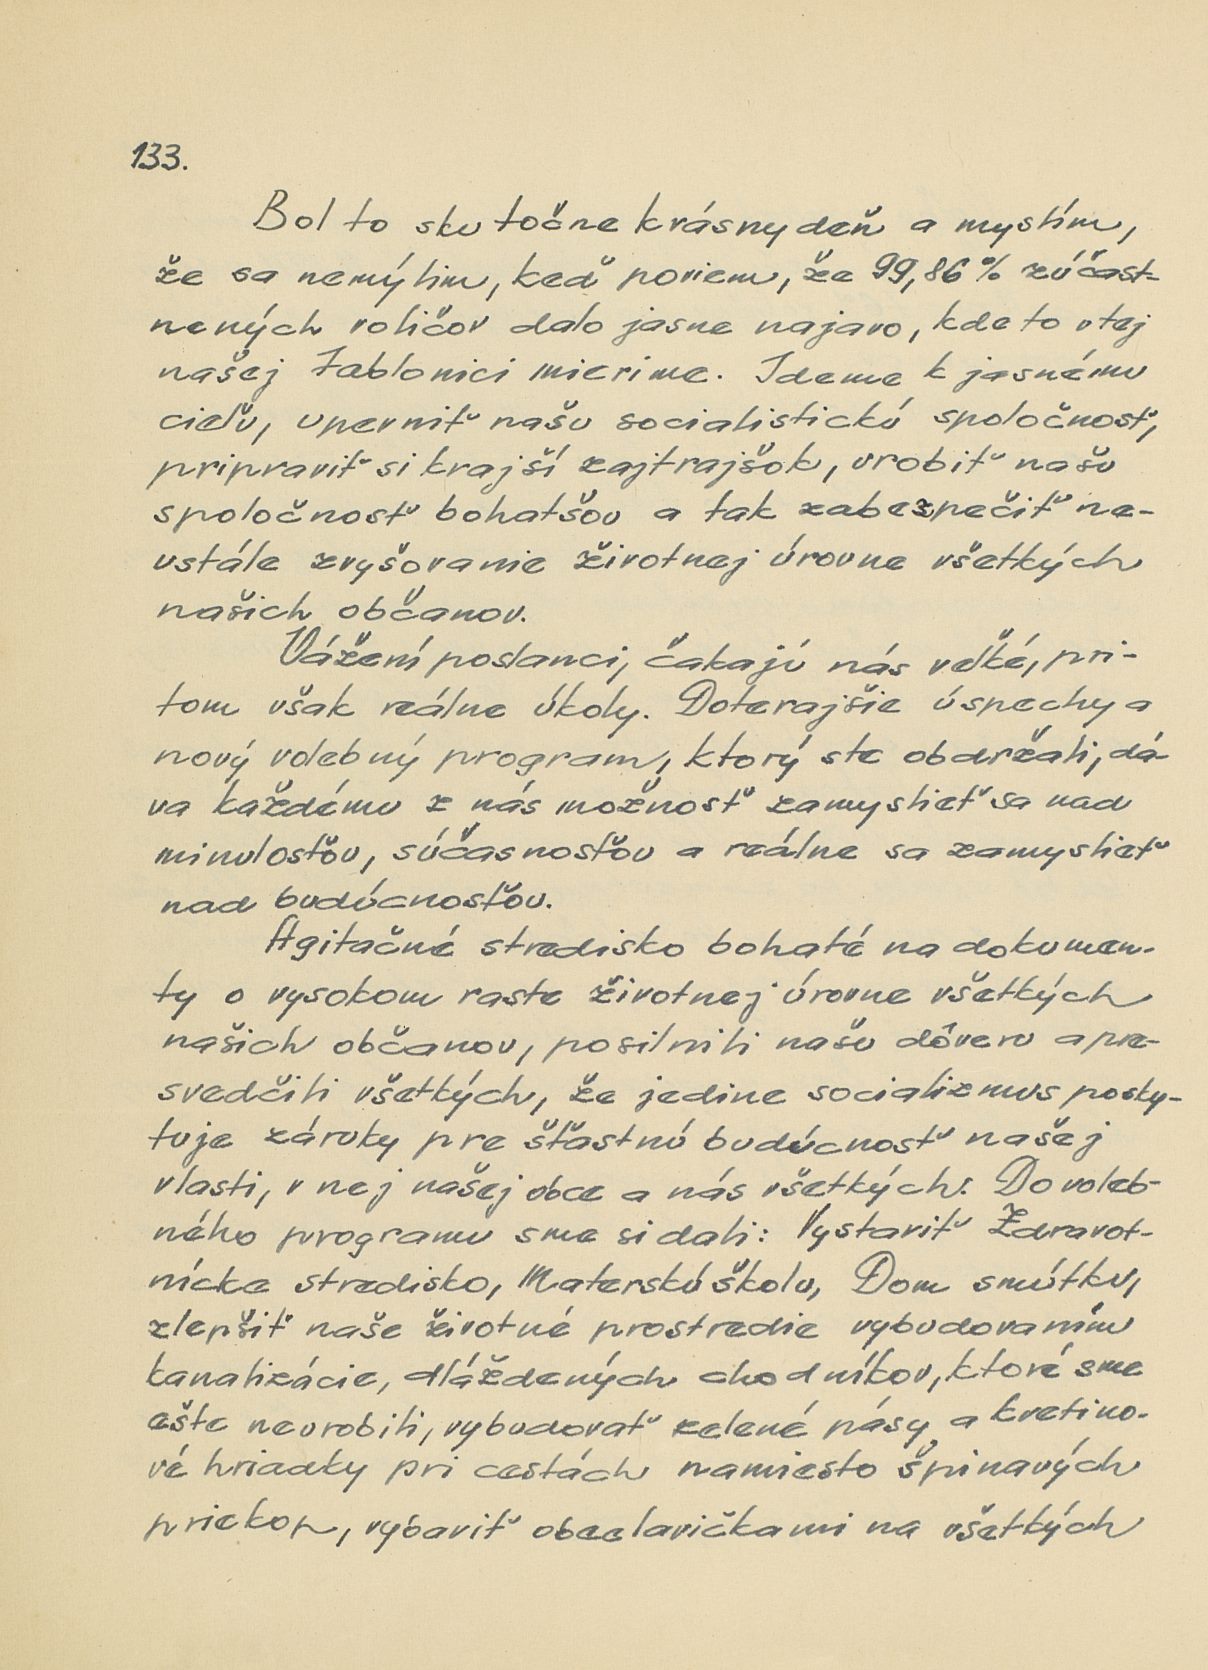 133.
Bol to skutočne krásny deň a myslím,
že sa nemýlim, keď poviem, že 99,86 % zúčast-
nených voličov dalo jasne najavo, kde to v tej
našej Jablonici mierime. Ideme k jasnému
cieľu, upevniť našu socialistickú spoločnosť,
pripraviť si krajší zajtrajšok, urobiť našu
spoločnosť bohatšou a tak zabezpečiť ne-
ustále zvyšovanie životnej úrovne všetkých
našich občanov.
Vážení poslanci, čakajú nás veľké, pri-
tom však reálne úkoly. Doterajšie úspechy a
nový volebný program, ktorý ste obdržali, dá-
va každému z nás možnosť zamyslieť sa nad
minulosťou, súčasnosťou a reálne sa zamyslieť
nad budúcnosťou.
Agitačné stredisko bohaté na dokumen-
ty o vysokom raste životnej úrovne všetkých
našich občanov, posilnili našu dôveru a pre-
svedčili všetkých, že jedine socializmus posky-
tuje záruky pre šťastnú budúcnosť našej
vlasti, v nej našej obce a nás všetkých. Do voleb-
ného programu sme si dali: Vystaviť Zdravot-
nícke stredisko, Materskú školu, Dom smútku,
zlepšiť naše životné prostredie vybudovaním
kanalizácie, dláždených chodníkov, ktoré sme
ešte neurobili, vybudovať zelené pásy a kvetino-
vé hriadky pri cestách namiesto špinavých
priekop, vybaviť obec lavičkami na všetkých